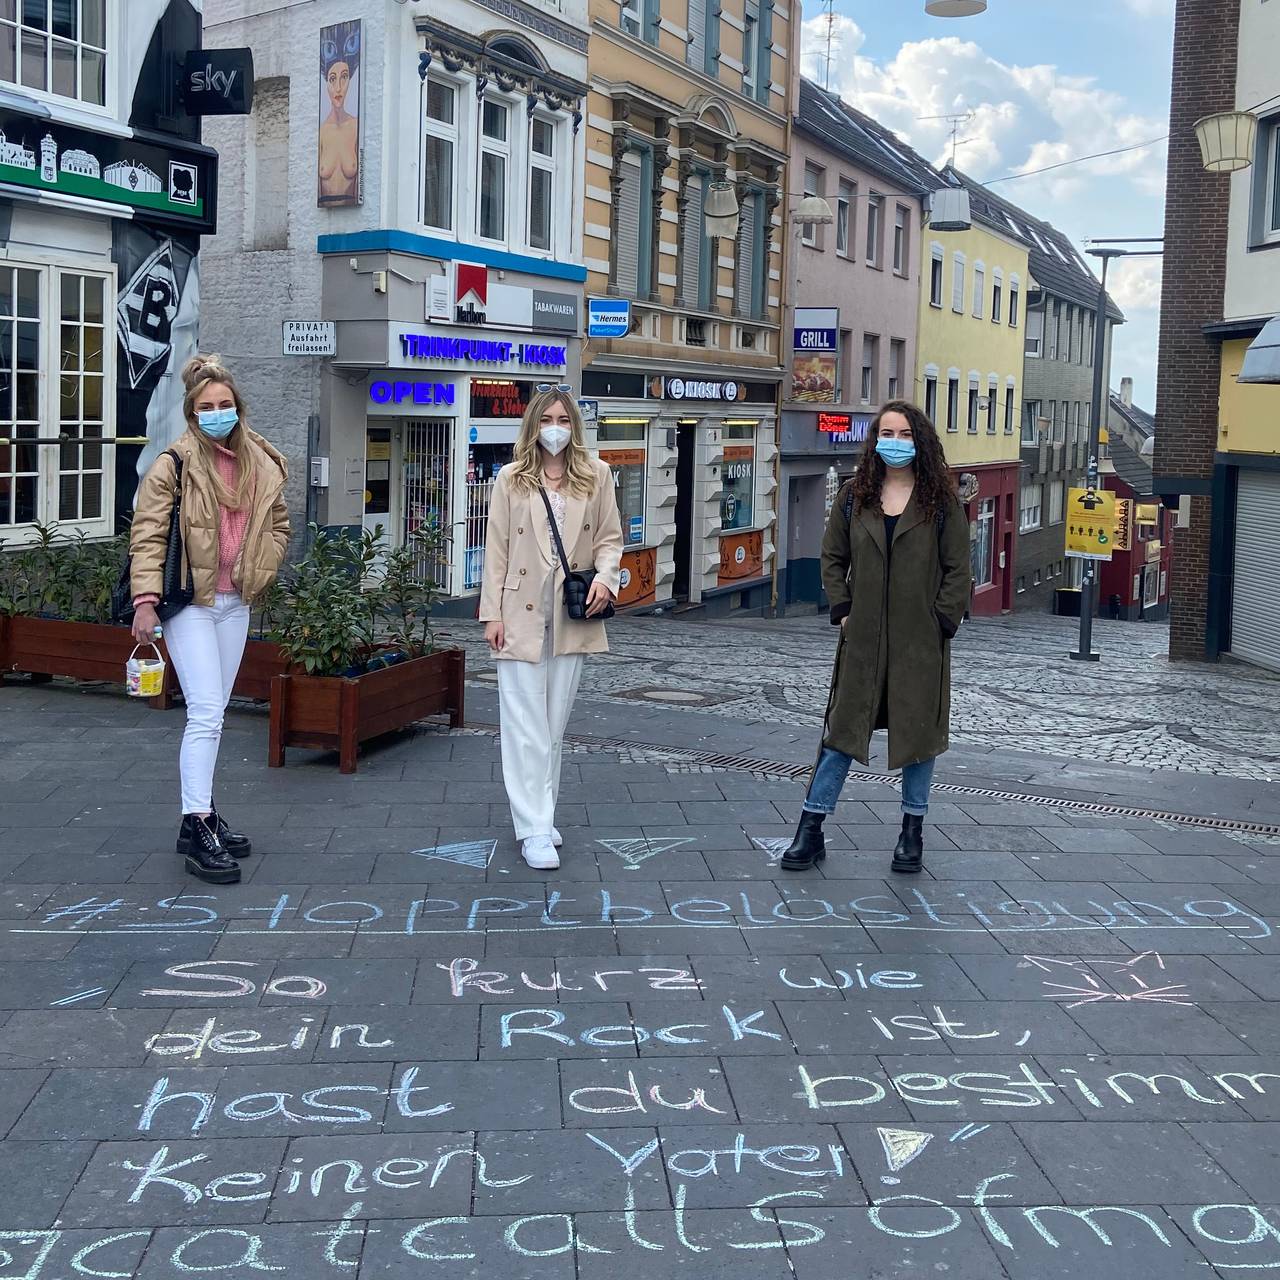 sky
PRIVAT!
Ausfahrt
freilassen!
Marlboro
TABAKWAREN
Hermes
PaketShop
TRINKPUNKT-KIOSK
OPEN
Trinkhalle
KIOSK
KIOSK
KIOSK
GRILL
Döner
B
#Stopptbelästigung
"So kurz wie
dein Rock ist,
hast du bestimm
keinen Vater!"
catcallsofmg